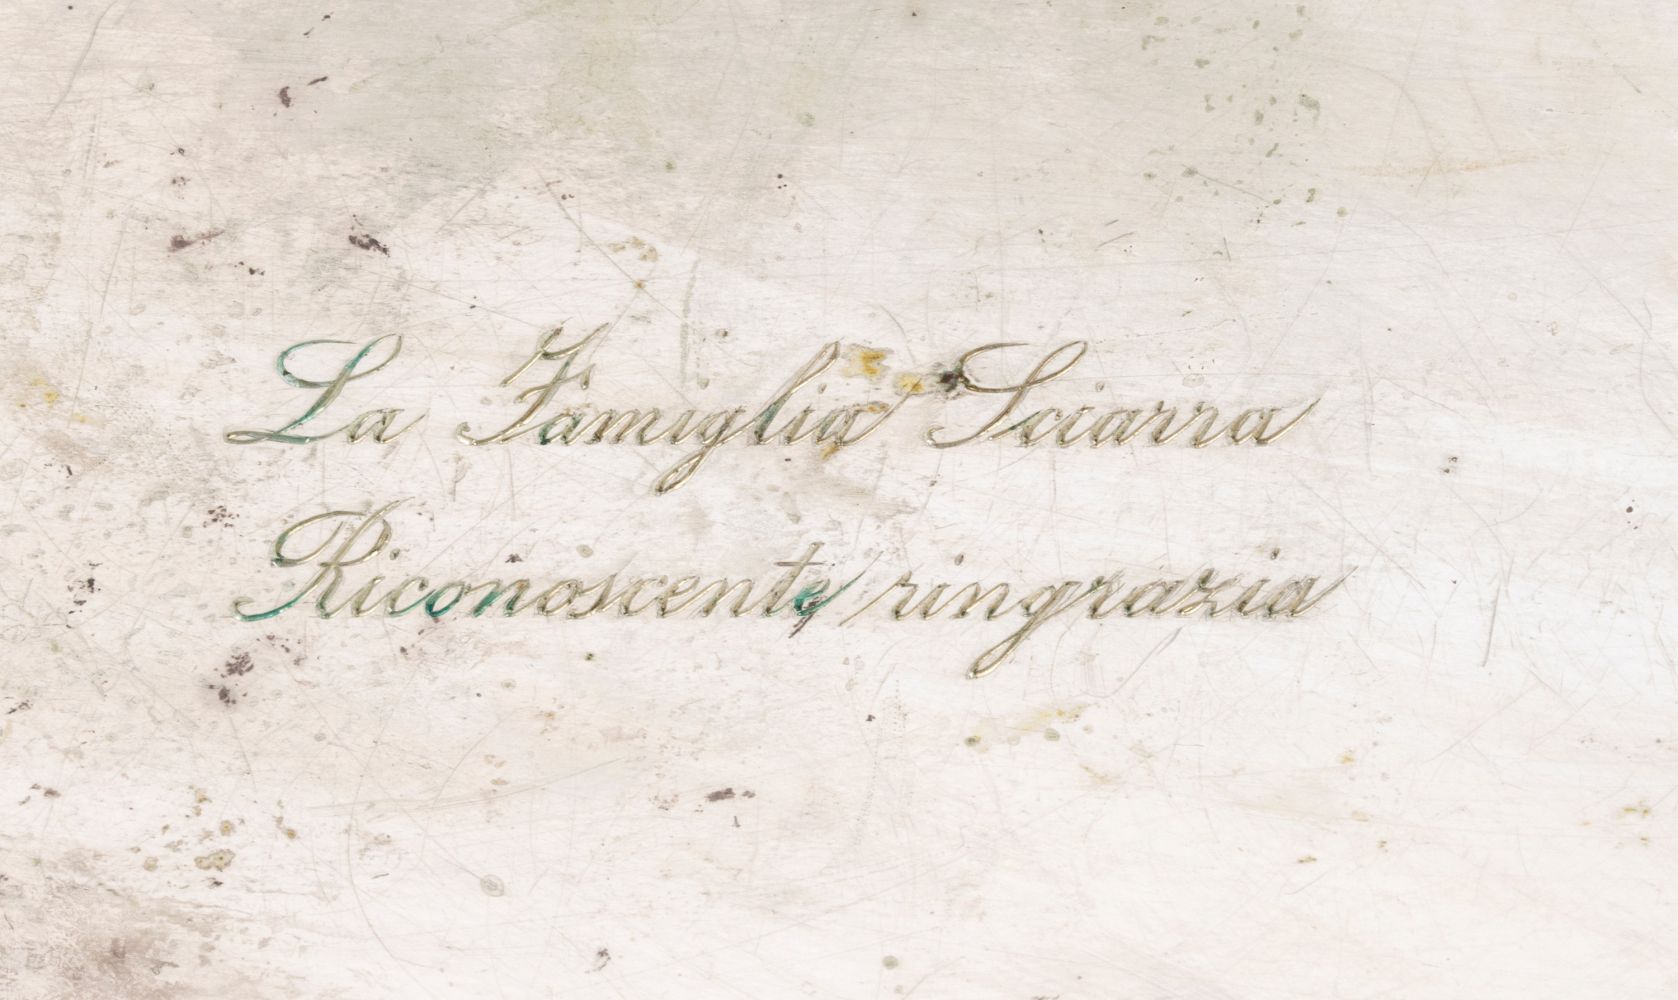 La Famiglia Sciarra
Riconoscente ringrazia